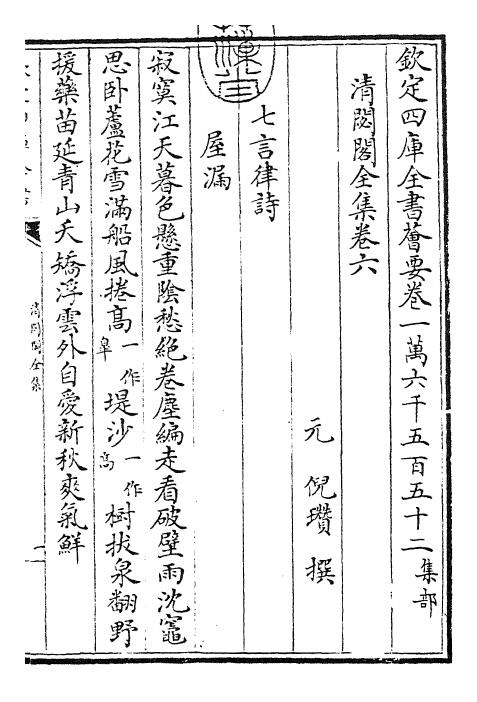 欽定四庫全書薈要卷一萬六千五百五十二集部
清閟閣全集卷六
元倪瓚撰
七言律詩
屋漏
寂寞江天暮色懸重陰愁絶卷塵編走看破壁雨沈竈
思卧蘆花雪滿船風捲髙一作臯堤沙一作髙樹拔泉翻野
援藥苗延青山夭矯浮雲外自愛新秋爽氣鮮
清閟閣全集